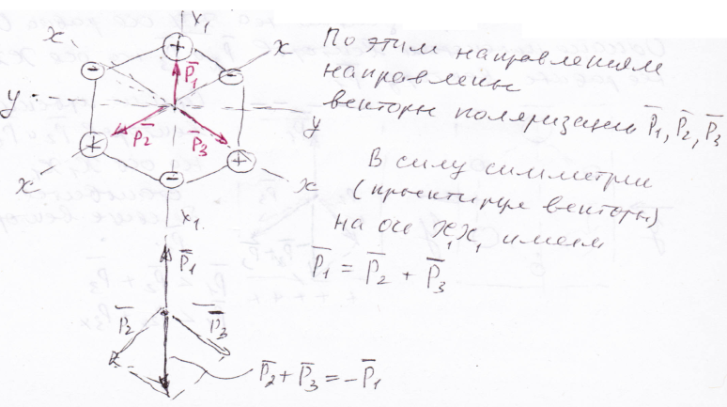 x₁
x
x
+
−
−
P̄₁
y
y
P̄₂
P̄₃
+
+
−
x
x
x₁
По этим направлениям
направлены
векторы поляризации P̄₁, P̄₂, P̄₃
В силу симметрии
(проектируя векторы)
на оси X₁X₁ имеем
P̄₁ = P̄₂ + P̄₃
P̄₁
P̄₂
P̄₃
P̄₂ + P̄₃ = −P̄₁